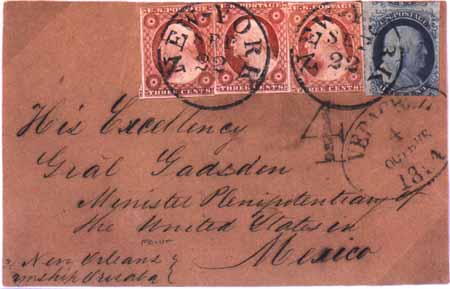 U.S. POSTAGE U.S. POSTAGE U.S. POSTAGE U.S. POSTAGE
NEW-YORK 22 NEW-Y 22
THREE CENTS. THREE CENTS. THREE CENTS.
His Excellency
Grãl Gadsden
4
VERACRUZ
4
OCTUBRE
Minister Plenipotentiary of
the United States in
Mexico
New Orleans
mship Orizaba